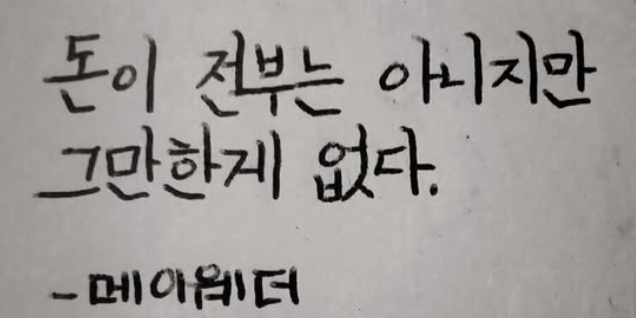 돈이 전부는 아니지만
그만한게 없다.
-메이웨더